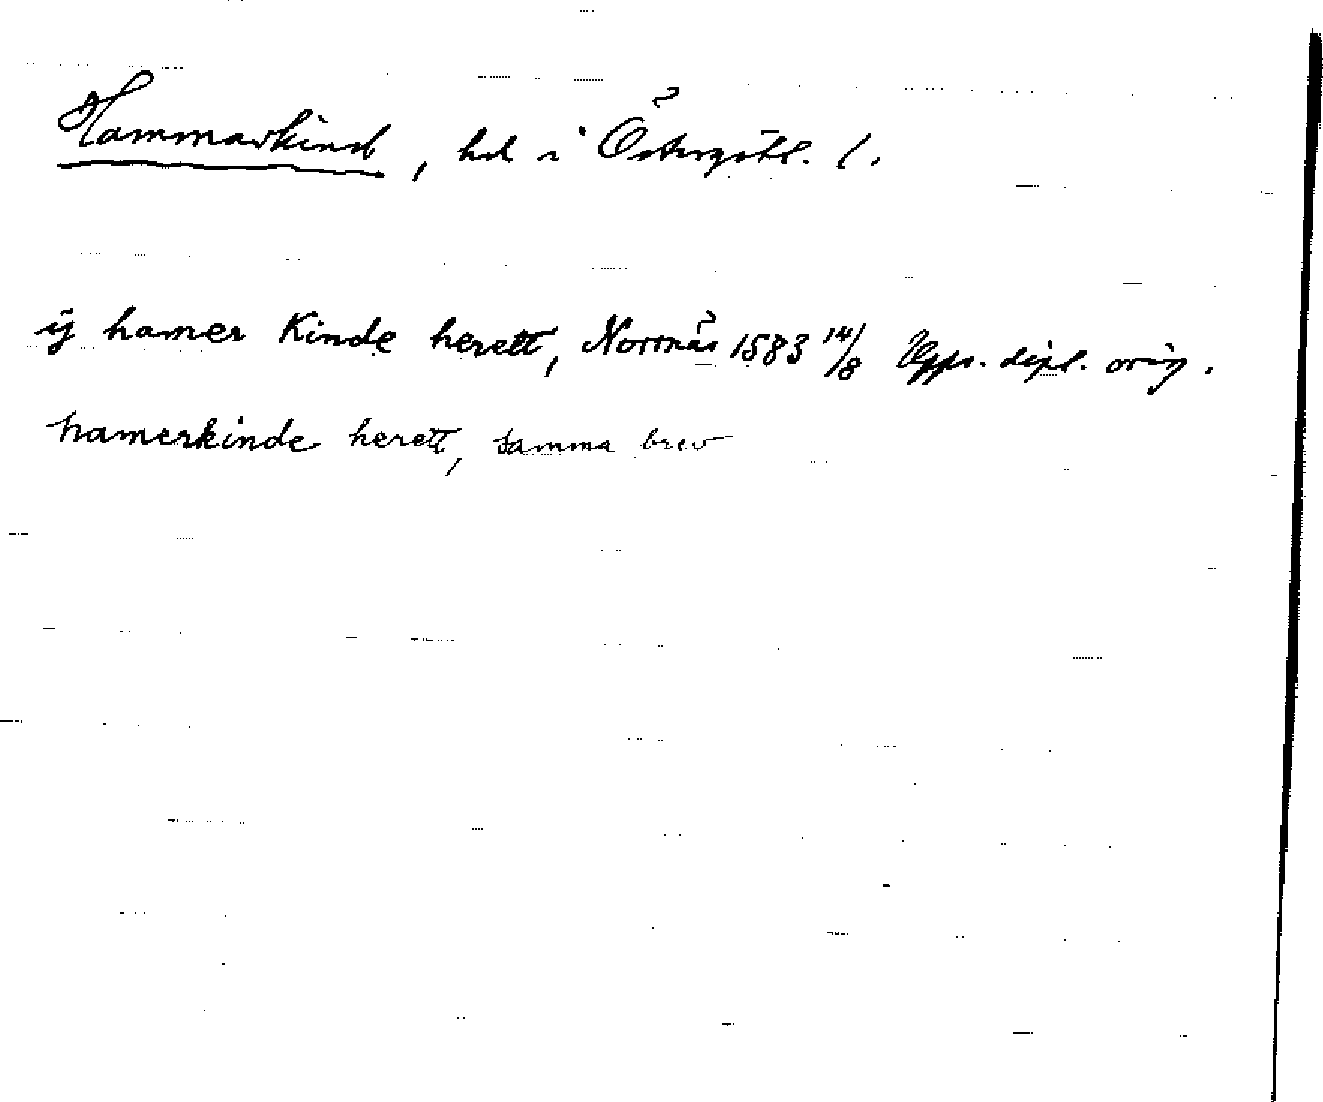 Hammarkind, hd i Östergötl. l.
ij hamer Kinde herett, Norrnäs 1583 14/8 Upps. dipl. orig.
hamerkinde herett, samma brev